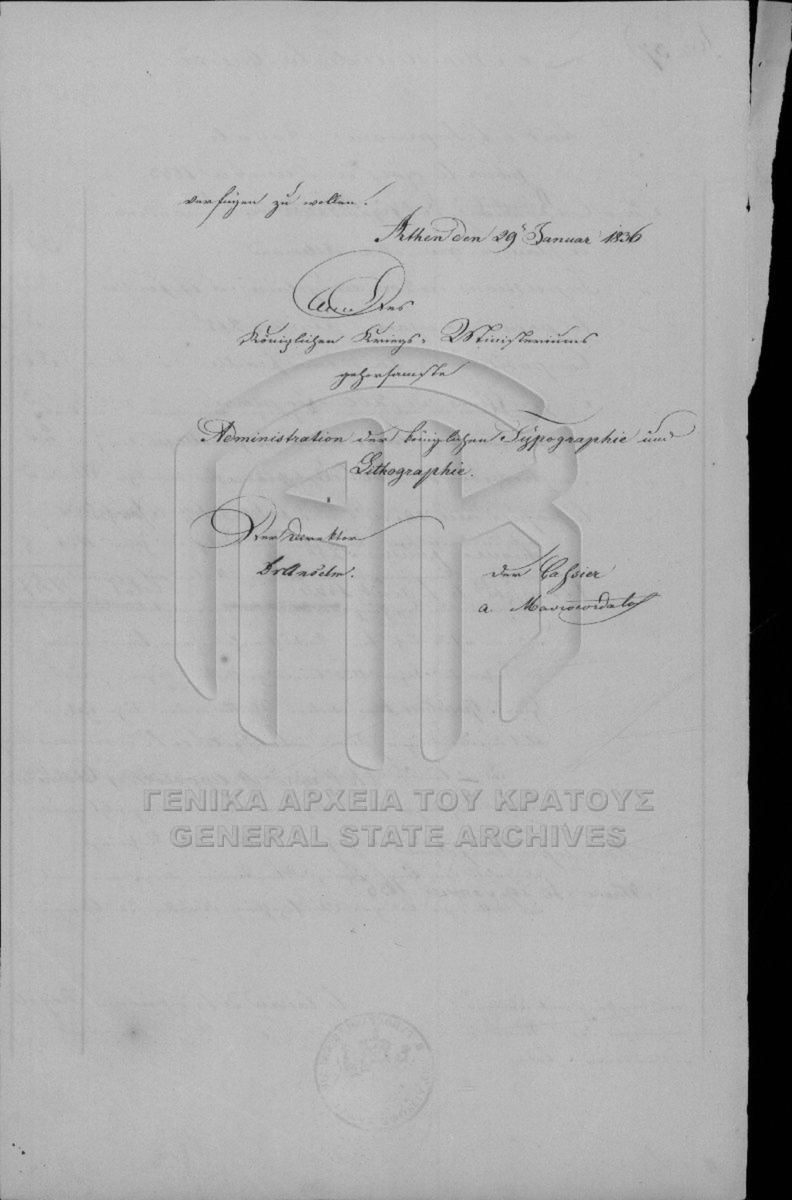 verfügen zu wollen.
Athen den 29 Januar 1836
Des
Königlichen Kriegs-Ministeriums
gehorsamste
Administration der königlichen Typographie und
Lithographie.
Der Direktor
Dr Anselm.
der Cassier
a. Mavrocordato
ΓΕΝΙΚΑ ΑΡΧΕΙΑ ΤΟΥ ΚΡΑΤΟΥΣ
GENERAL STATE ARCHIVES